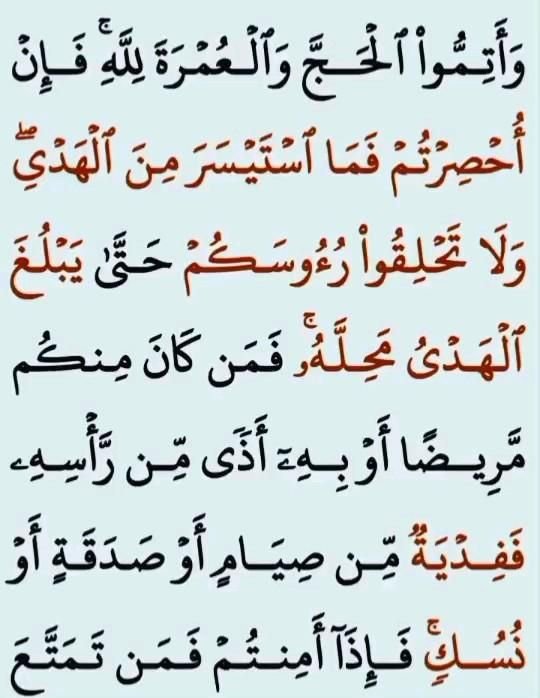 وَأَتِمُّوا۟ ٱلْحَـجَّ وَٱلْـعُمْرَةَ لِلَّهِۚ فَـإِنْ
أُحْصِرْتُمْ فَمَا ٱسْتَيْسَرَ مِنَ ٱلْهَدْىِۖ
وَلَا تَحْلِقُوا۟ رُءُوسَـكُمْ حَتَّىٰ يَبْلُغَ
ٱلْـهَـدْىُ مَحِلَّهُۥۚ فَمَن كَانَ مِنكُم
مَّرِيـضًا أَوْ بِـهِۦٓ أَذًى مِّـن رَّأْسِـهِۦ
فَفِـدْيَةٌ مِّـن صِيَـامٍ أَوْ صَدَقَـةٍ أَوْ
نُسُـكٍۚ فَـإِذَآ أَمِنـتُـمْ فَـمَـن تَـمَتَّعَ